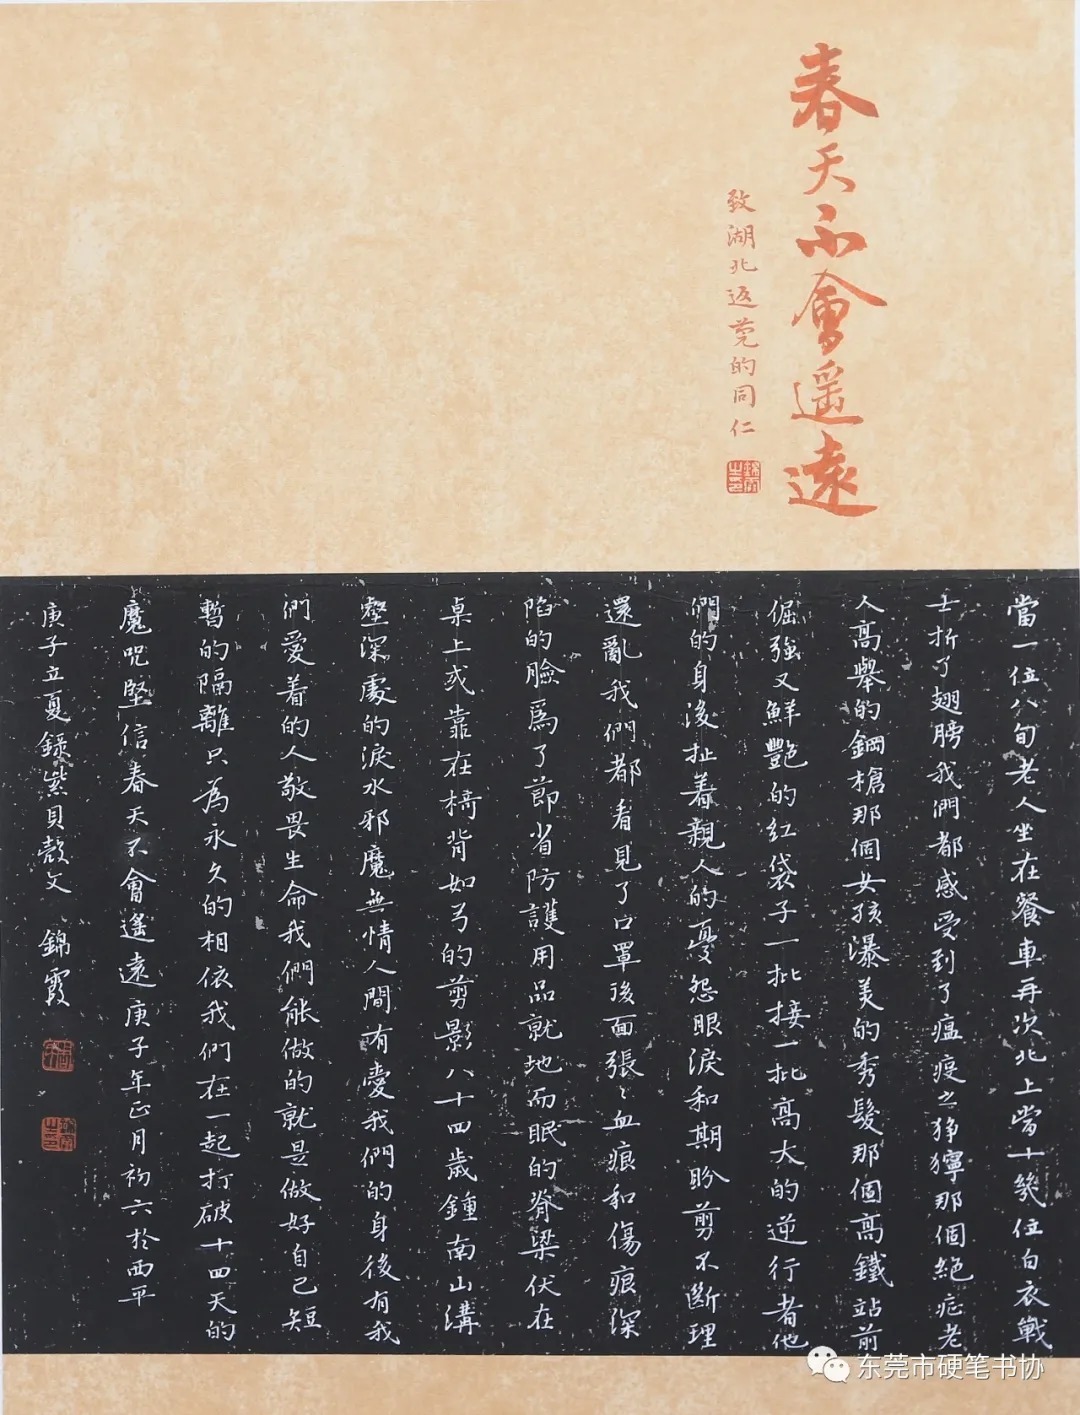 春天不會遥遠
致湖北返莞的同仁
當一位八旬老人坐在餐車再次北上當十幾位白衣戰
士折了翅膀我們都感受到了瘟疫之狰獰那個絕症老
人高舉的鋼槍那個女孩瀑美的秀髮那個高鐵站前
倔強又鮮艷的红袋子一批接一批高大的逆行者他
們的身後扯着親人的憂怨眼淚和期盼剪不斷理
還亂我們都看見了口罩後面張〻血痕和傷痕深
陷的臉爲了節省防護用品就地而眠的脊梁伏在
桌上或靠在椅背如弓的剪影八十四歲鍾南山溝
壑深處的淚水邪魔無情人間有愛我們的身後有我
們愛着的人敬畏生命我們能做的就是做好自己短
暫的隔離只為永久的相依我們在一起打破十四天的
魔咒堅信春天不會遥遠庚子年正月初六於西平
庚子立夏録紫貝殼文 錦霞
东莞市硬笔书协